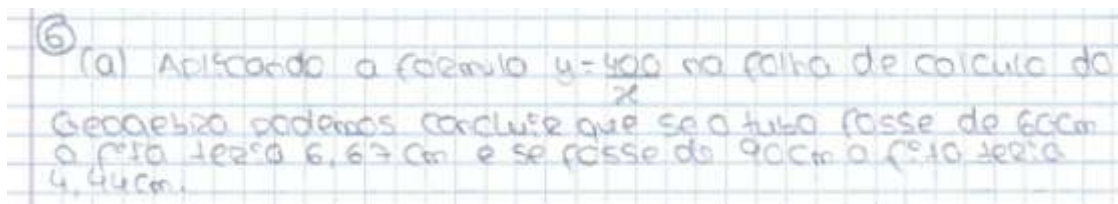 6
(a) Aplicando a fórmula y = 400/x na folha de calculo do
Geogebra podemos concluir que se o tubo fosse de 60cm
a fita teria 6,67 cm e se fosse de 90cm a fita teria
4,44cm.